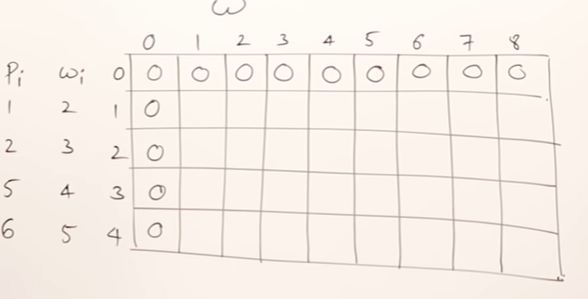 ω
0 1 2 3 4 5 6 7 8
Pi ωi 0 0 0 0 0 0 0 0 0 0
1 2 1 0
2 3 2 0
5 4 3 0
6 5 4 0